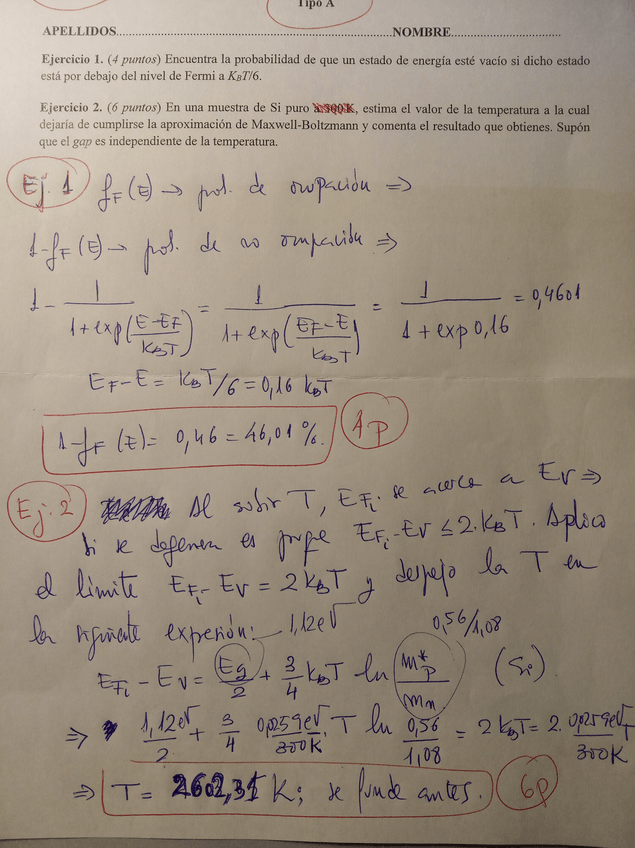 Tipo A
APELLIDOS..........................................................................NOMBRE...........................
Ejercicio 1. (4 puntos) Encuentra la probabilidad de que un estado de energía esté vacío si dicho estado
está por debajo del nivel de Fermi a K_BT/6.
Ejercicio 2. (6 puntos) En una muestra de Si puro a 300K, estima el valor de la temperatura a la cual
dejaría de cumplirse la aproximación de Maxwell-Boltzmann y comenta el resultado que obtienes. Supón
que el gap es independiente de la temperatura.
Ej. 1 f_F(E) → prob. de ocupación ⇒
1-f_F(E) → prob. de no ocupación ⇒
1 - 1/(1+exp((E-E_F)/(K_BT))) = 1/(1+exp((E_F-E)/(K_BT))) = 1/(1+exp 0,16) = 0,4601
E_F-E = K_BT/6 = 0,16 K_BT
1-f_F(E) = 0,46 = 46,01 %. 4p
Ej. 2 Al subir T, E_Fi se acerca a E_V ⇒
Si se degenera es porque E_Fi-E_V ≤ 2·K_BT. Aplico
el límite E_Fi-E_V = 2K_BT y despejo la T en
la siguiente expresión: 1,12eV 0,56/1,08
E_Fi - E_V = E_g/2 + 3/4 K_BT ln m*_p/m_n (Si)
⇒ 1,12eV/2 + 3/4 0,0259eV/300K · T ln 0,56/1,08 = 2K_BT = 2· 0,0259eV/300K T
⇒ T = 2602,31 K; se funde antes. 6p